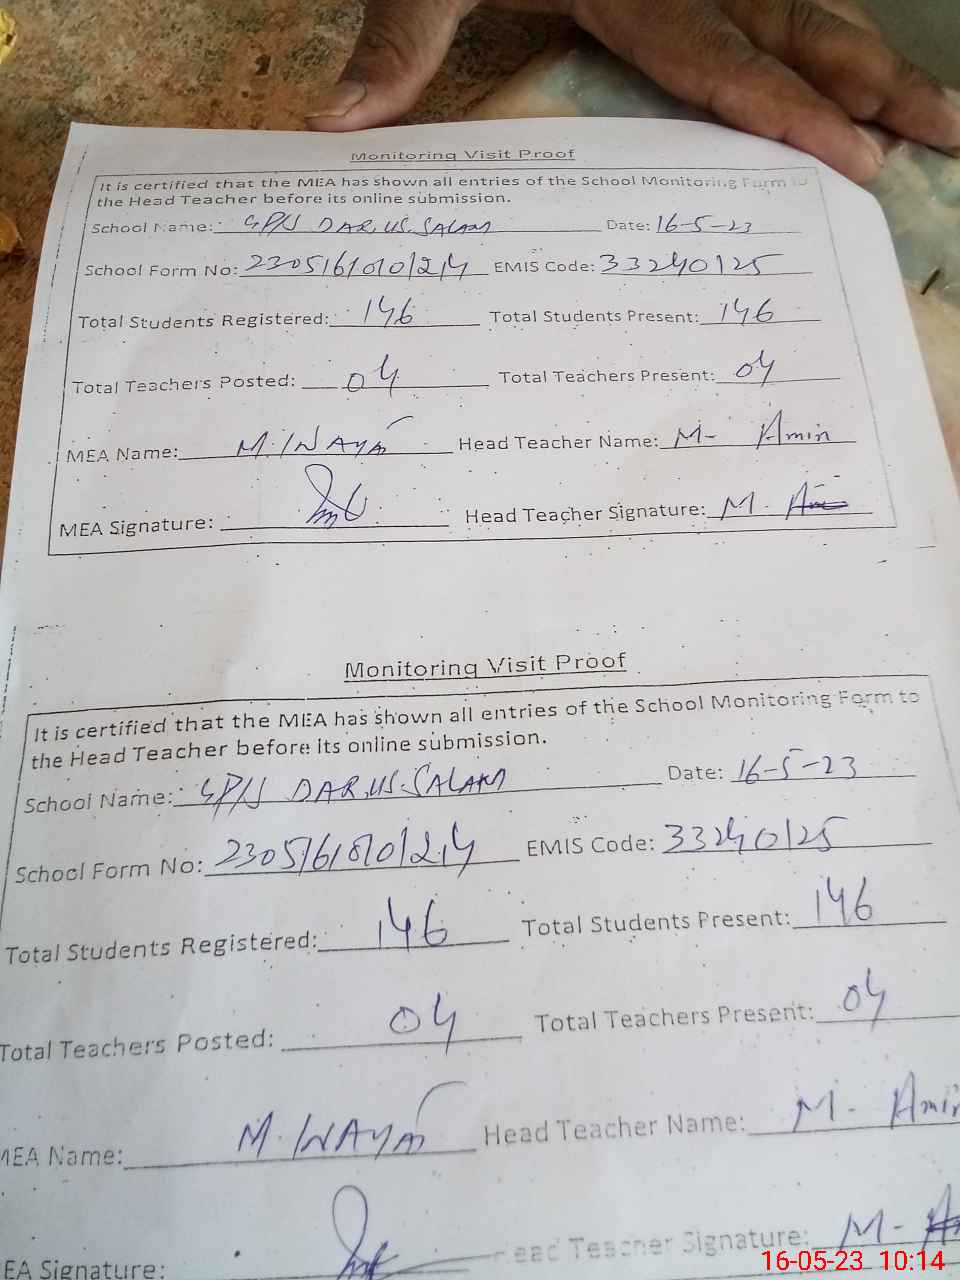 Monitoring Visit Proof
It is certified that the MEA has shown all entries of the School Monitoring Form to
the Head Teacher before its online submission.
School Name: GPN DAR.US.SALAM Date: 16-5-23
School Form No: EMIS Code: 33240125
Total Students Registered: 146 Total Students Present: 146
Total Teachers Posted: 04 Total Teachers Present: 04
MEA Name: M. Head Teacher Name: M- Amin
MEA Signature: Head Teacher Signature: M.
Monitoring Visit Proof
It is certified that the MEA has shown all entries of the School Monitoring Form to
the Head Teacher before its online submission.
School Name: DAR.US.SALAM Date: 16-5-23
School Form No: EMIS Code: 33240125
Total Students Registered: 146 Total Students Present: 146
Total Teachers Posted: 04 Total Teachers Present: 04
MEA Name: M. Head Teacher Name: M- Amin
EA Signature: Head Teacher Signature: M-
16-05-23 10:14